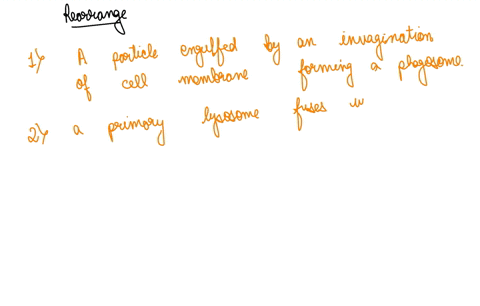 Rearrange
1) A particle engulfed by an invagination
of cell membrane forming a phagosome.
2) a primary lysosome fuses w